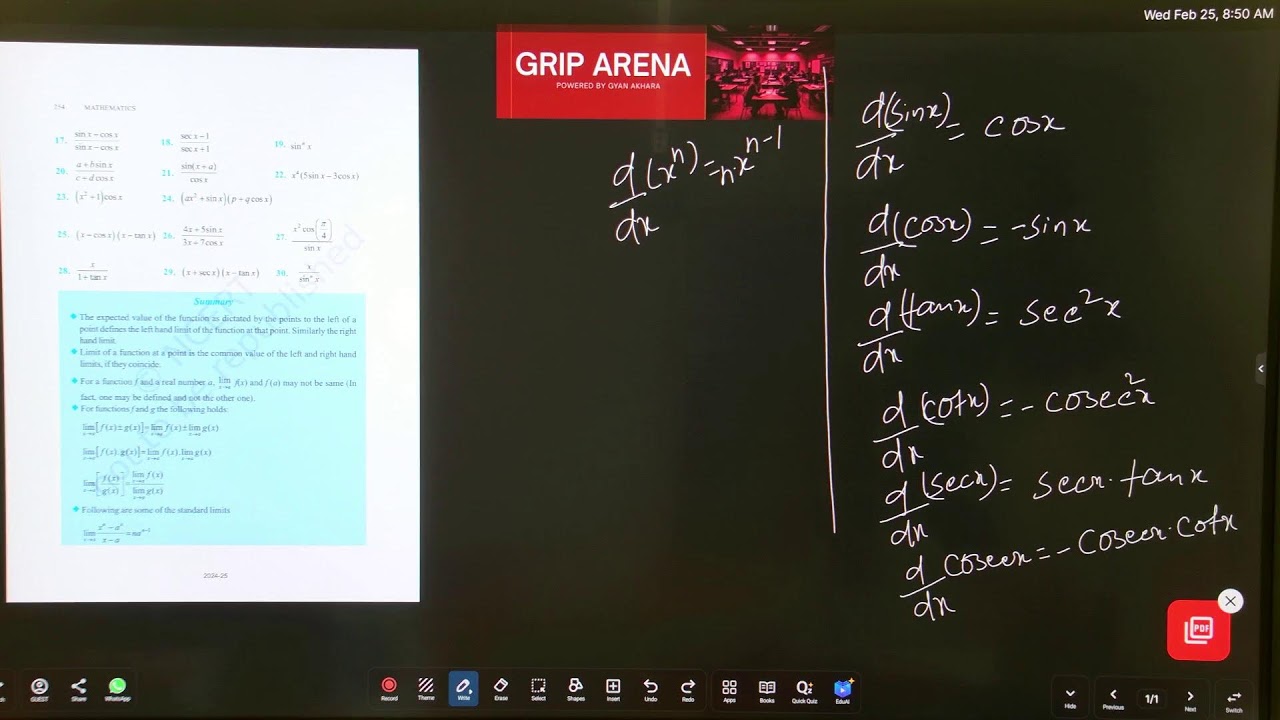 Wed Feb 25, 8:50 AM
GRIP ARENA
POWERED BY GYAN AKHARA
254 MATHEMATICS
17. (sin x + cos x)/(sin x − cos x) 18. (sec x − 1)/(sec x + 1) 19. sinⁿ x
20. (a + b sin x)/(c + d cos x) 21. sin(x + a)/cos x 22. x⁴(5 sin x − 3 cos x)
23. (x² + 1) cos x 24. (ax² + sin x)(p + q cos x)
25. (x − cos x)(x − tan x) 26. (4x + 5 sin x)/(3x + 7 cos x) 27. x² cos(π/4)/sin x
28. x/(1 + tan x) 29. (x + sec x)(x − tan x) 30. x/sinⁿ x
Summary
The expected value of the function as dictated by the points to the left of a
point defines the left hand limit of the function at that point. Similarly the right
hand limit.
Limit of a function at a point is the common value of the left and right hand
limits, if they coincide.
For a function f and a real number a, lim x→a f(x) and f(a) may not be same (In
fact, one may be defined and not the other one).
For functions f and g the following holds:
lim x→a [f(x) ± g(x)] = lim x→a f(x) ± lim x→a g(x)
lim x→a [f(x).g(x)] = lim x→a f(x).lim x→a g(x)
lim x→a [f(x)/g(x)] = lim x→a f(x)/lim x→a g(x)
Following are some of the standard limits
lim x→a (xⁿ − aⁿ)/(x − a) = naⁿ⁻¹
2024-25
d/dx (xⁿ) = n·xⁿ⁻¹
d/dx (sinx) = cosx
d/dx (cosx) = -sinx
d/dx (tanx) = sec²x
d/dx (cotx) = -cosec²x
d/dx (secx) = secx·tanx
d/dx cosecx = -cosecx·cotx
PDF
GUEST Share WhatsApp Record Theme Write Erase Select Shapes Insert Undo Redo Apps Books Quick Quiz EduAI Hide Previous 1/1 Next Switch